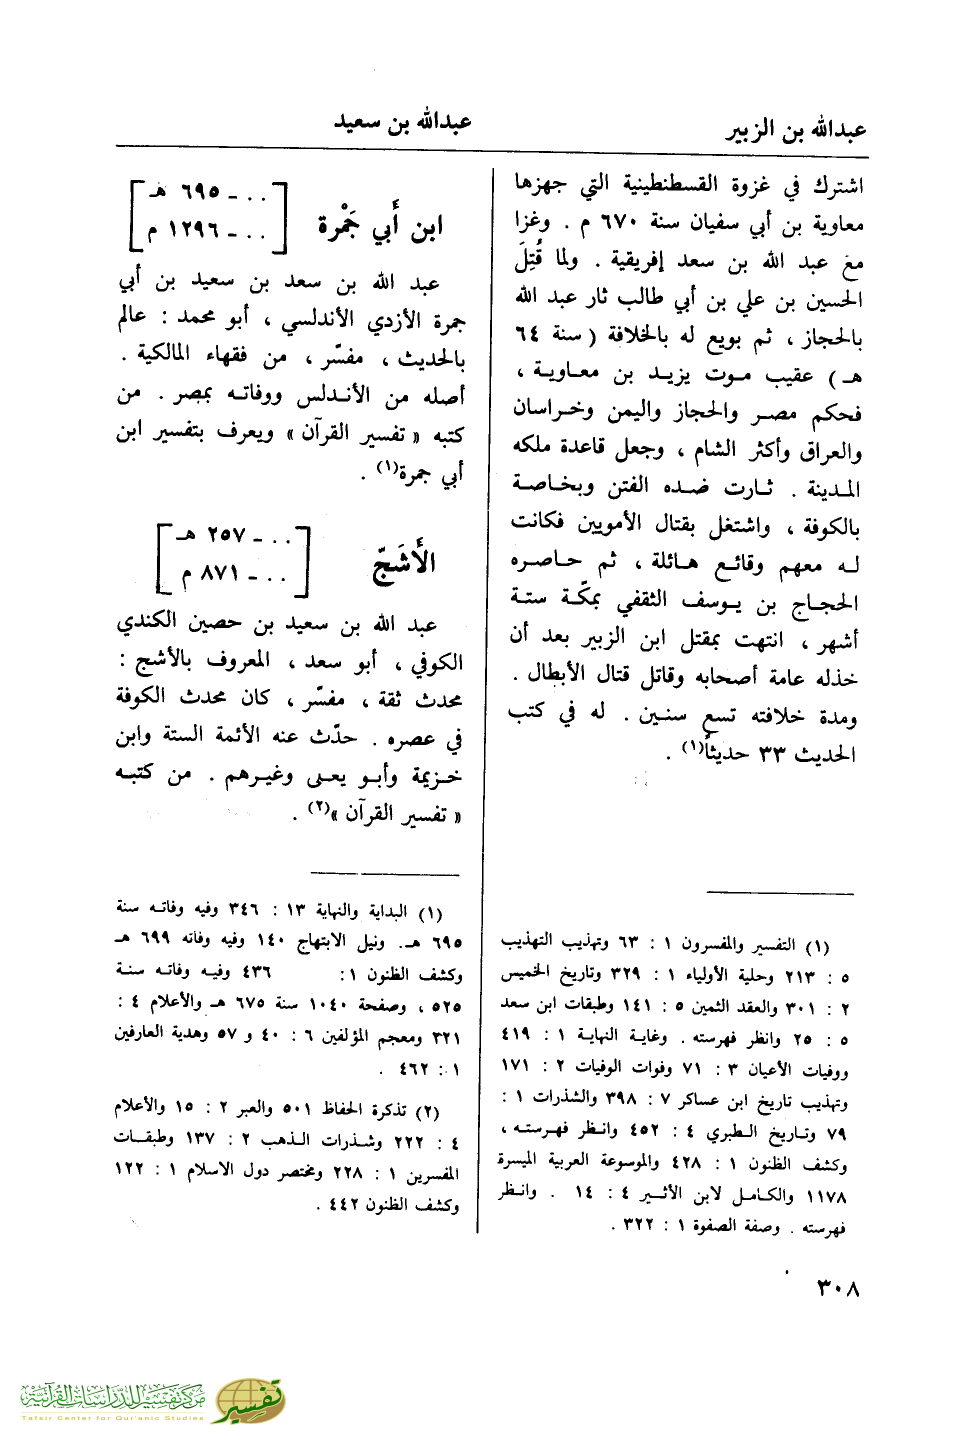 عبدالله بن الزبير
عبدالله بن سعيد
اشترك في غزوة القسطنطينية التي جهزها
معاوية بن أبي سفيان سنة ٦٧٠ م . وغزا
مع عبد الله بن سعد إفريقية . ولما قُتِلَ
الحسين بن علي بن أبي طالب ثار عبد الله
بالحجاز ، ثم بويع له بالخلافة ( سنة ٦٤
هـ ) عقيب موت يزيد بن معاوية ،
فحكم مصر والحجاز واليمن وخراسان
والعراق وأكثر الشام ، وجعل قاعدة ملكه
المدينة . ثارت ضده الفتن وبخاصة
بالكوفة ، واشتغل بقتال الأمويين فكانت
له معهم وقائع هائلة ، ثم حاصره
الحجاج بن يوسف الثقفي بمكّة ستة
أشهر ، انتهت بمقتل ابن الزبير بعد أن
خذله عامة أصحابه وقاتل قتال الأبطال .
ومدة خلافته تسع سنين . له في كتب
الحديث ٣٣ حديثاً(١) .
(١) التفسير والمفسرون ١ : ٦٣ وتهذيب التهذيب
٥ : ٢١٣ وحلية الأولياء ١ : ٣٢٩ وتاريخ الخميس
٢ : ٣٠١ والعقد الثمين ٥ : ١٤١ وطبقات ابن سعد
٥ : ٢٥ وانظر فهرسته . وغاية النهاية ١ : ٤١٩
ووفيات الأعيان ٣ : ٧١ وفوات الوفيات ٢ : ١٧١
وتهذيب تاريخ ابن عساكر ٧ : ٣٩٨ والشذرات ١ :
٧٩ وتاريخ الطبري ٤ : ٤٥٢ وانظر فهرسته ،
وكشف الظنون ١ : ٤٢٨ والموسوعة العربية الميسرة
١١٧٨ والكامل لابن الأثير ٤ : ١٤ . وانظر
فهرسته . وصفة الصفوة ١ : ٣٢٢ .
ابن أَبي جَمْرة [ . . ـ ٦٩٥ هـ
. . ـ ١٢٩٦ م ]
عبد الله بن سعد بن سعيد بن أبي
جمرة الأزدي الأندلسي ، أبو محمد : عالم
بالحديث ، مفسّر ، من فقهاء المالكية .
أصله من الأندلس ووفاته بمصر . من
كتبه « تفسير القرآن » ويعرف بتفسير ابن
أبي جمرة(١) .
الأَشَجّ [ . . ـ ٢٥٧ هـ
. . ـ ٨٧١ م ]
عبد الله بن سعيد بن حصين الكندي
الكوفي ، أبو سعد ، المعروف بالأشج :
محدث ثقة ، مفسّر ، كان محدث الكوفة
في عصره . حدّث عنه الأئمة الستة وابن
خزيمة وأبو يعلى وغيرهم . من كتبه
« تفسير القرآن »(٢) .
(١) البداية والنهاية ١٣ : ٣٤٦ وفيه وفاته سنة
٦٩٥ هـ. ونيل الابتهاج ١٤٠ وفيه وفاته ٦٩٩ هـ
وكشف الظنون ١: ٤٣٦ وفيه وفاته سنة
٥٢٥ ، وصفحة ١٠٤٠ سنة ٦٧٥ هـ والأعلام ٤ :
٣٢١ ومعجم المؤلفين ٦ : ٤٠ و ٥٧ وهدية العارفين
١ : ٤٦٢ .
(٢) تذكرة الحفاظ ٥٠١ والعبر ٢ : ١٥ والأعلام
٤ : ٢٢٢ وشذرات الذهب ٢ : ١٣٧ وطبقات
المفسرين ١ : ٢٢٨ ومختصر دول الاسلام ١ : ١٢٢
وكشف الظنون ٤٤٢ .
٣٠٨
مركز تفسير للدراسات القرآنية
Tafsir Center for Qur'anic Studies
تفسير